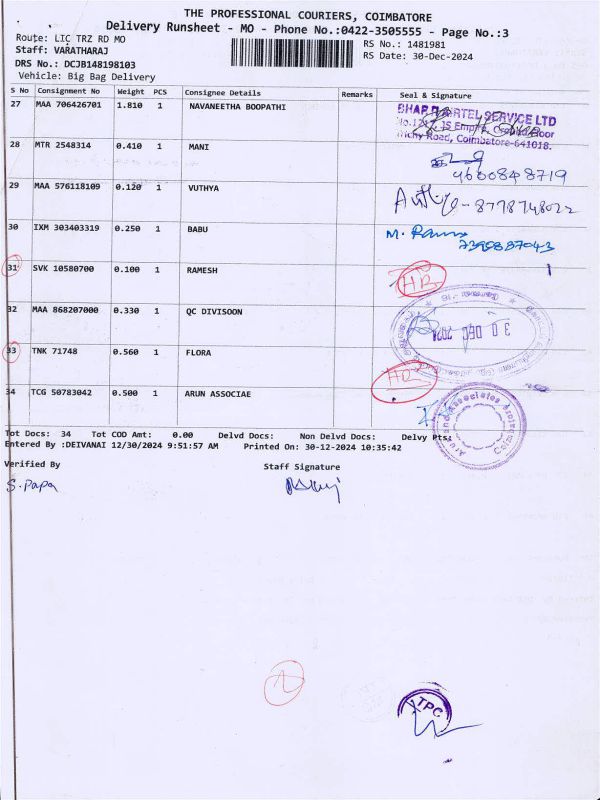 THE PROFESSIONAL COURIERS, COIMBATORE
Delivery Runsheet - MO - Phone No.:0422-3505555 - Page No.:3
Route: LIC TRZ RD MO
RS No.: 1481981
Staff: VARATHARAJ
RS Date: 30-Dec-2024
DRS No.: DCJB148198103
Vehicle: Big Bag Delivery
S No Consignment No Weight PCS Consignee Details Remarks Seal & Signature
27 MAA 706426701 1.810 1 NAVANEETHA BOOPATHI
TEL SERVICE LTD
Trichy Road, Coimbatore-641018.
28 MTR 2548314 0.410 1 MANI
9600848719
29 MAA 576118109 0.120 1 VUTHYA
8778748022
30 IXM 303403319 0.250 1 BABU
M.
7390887043
31 SVK 10580700 0.100 1 RAMESH
32 MAA 868207000 0.330 1 QC DIVISOON
30 DEC 2024
33 TNK 71748 0.560 1 FLORA
34 TCG 50783042 0.500 1 ARUN ASSOCIAE
Tot Docs: 34 Tot COD Amt: 0.00 Delvd Docs: Non Delvd Docs: Delvy Pts:
Entered By :DEIVANAI 12/30/2024 9:51:57 AM Printed On: 30-12-2024 10:35:42
Verified By Staff Signature
S. Papa
TPC